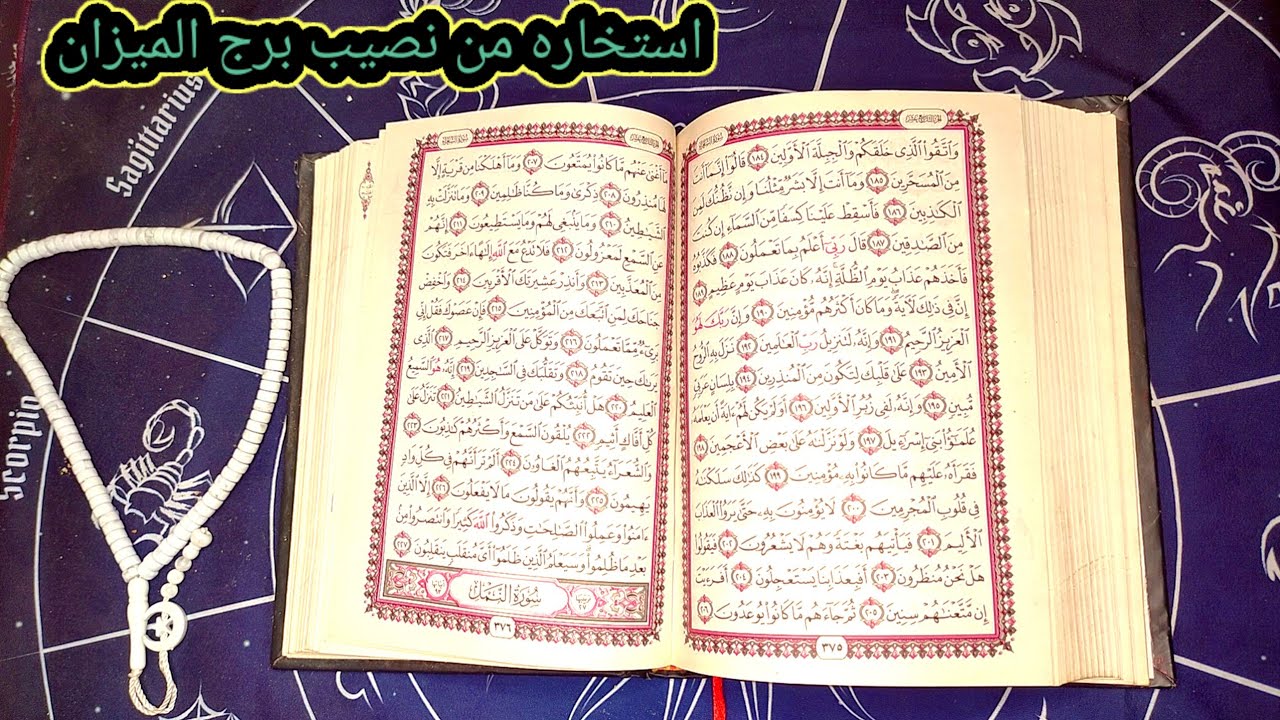 استخاره من نصيب برج الميزان
Sagittarius
Scorpio
وَاتَّقُوا الَّذِي خَلَقَكُمْ وَالْجِبِلَّةَ الْأَوَّلِينَ ١٨٤ قَالُوا إِنَّمَا أَنتَ
مِنَ الْمُسَحَّرِينَ ١٨٥ وَمَا أَنتَ إِلَّا بَشَرٌ مِّثْلُنَا وَإِن نَّظُنُّكَ لَمِنَ
الْكَٰذِبِينَ ١٨٦ فَأَسْقِطْ عَلَيْنَا كِسَفًا مِّنَ السَّمَاءِ إِن كُنتَ
مِنَ الصَّٰدِقِينَ ١٨٧ قَالَ رَبِّي أَعْلَمُ بِمَا تَعْمَلُونَ ١٨٨ فَكَذَّبُوهُ
فَأَخَذَهُمْ عَذَابُ يَوْمِ الظُّلَّةِ إِنَّهُ كَانَ عَذَابَ يَوْمٍ عَظِيمٍ ١٨٩
إِنَّ فِي ذَٰلِكَ لَآيَةً وَمَا كَانَ أَكْثَرُهُم مُّؤْمِنِينَ ١٩٠ وَإِنَّ رَبَّكَ لَهُوَ
الْعَزِيزُ الرَّحِيمُ ١٩١ وَإِنَّهُ لَتَنزِيلُ رَبِّ الْعَٰلَمِينَ ١٩٢ نَزَلَ بِهِ الرُّوحُ
الْأَمِينُ ١٩٣ عَلَىٰ قَلْبِكَ لِتَكُونَ مِنَ الْمُنذِرِينَ ١٩٤ بِلِسَانٍ عَرَبِيٍّ
مُّبِينٍ ١٩٥ وَإِنَّهُ لَفِي زُبُرِ الْأَوَّلِينَ ١٩٦ أَوَلَمْ يَكُن لَّهُمْ ءَايَةً أَن يَعْلَمَهُ
عُلَمَٰؤُا بَنِي إِسْرَٰءِيلَ ١٩٧ وَلَوْ نَزَّلْنَٰهُ عَلَىٰ بَعْضِ الْأَعْجَمِينَ ١٩٨
فَقَرَأَهُ عَلَيْهِم مَّا كَانُوا بِهِ مُؤْمِنِينَ ١٩٩ كَذَٰلِكَ سَلَكْنَٰهُ
فِي قُلُوبِ الْمُجْرِمِينَ ٢٠٠ لَا يُؤْمِنُونَ بِهِ حَتَّىٰ يَرَوُا الْعَذَابَ
الْأَلِيمَ ٢٠١ فَيَأْتِيَهُم بَغْتَةً وَهُمْ لَا يَشْعُرُونَ ٢٠٢ فَيَقُولُوا
هَلْ نَحْنُ مُنظَرُونَ ٢٠٣ أَفَبِعَذَابِنَا يَسْتَعْجِلُونَ ٢٠٤ أَفَرَءَيْتَ
إِن مَّتَّعْنَٰهُمْ سِنِينَ ٢٠٥ ثُمَّ جَاءَهُم مَّا كَانُوا يُوعَدُونَ ٢٠٦
٣٧٥
مَا أَغْنَىٰ عَنْهُم مَّا كَانُوا يُمَتَّعُونَ ٢٠٧ وَمَا أَهْلَكْنَا مِن قَرْيَةٍ إِلَّا
لَهَا مُنذِرُونَ ٢٠٨ ذِكْرَىٰ وَمَا كُنَّا ظَٰلِمِينَ ٢٠٩ وَمَا تَنَزَّلَتْ بِهِ
الشَّيَٰطِينُ ٢١٠ وَمَا يَنبَغِي لَهُمْ وَمَا يَسْتَطِيعُونَ ٢١١ إِنَّهُمْ
عَنِ السَّمْعِ لَمَعْزُولُونَ ٢١٢ فَلَا تَدْعُ مَعَ اللَّهِ إِلَٰهًا ءَاخَرَ فَتَكُونَ
مِنَ الْمُعَذَّبِينَ ٢١٣ وَأَنذِرْ عَشِيرَتَكَ الْأَقْرَبِينَ ٢١٤ وَاخْفِضْ
جَنَاحَكَ لِمَنِ اتَّبَعَكَ مِنَ الْمُؤْمِنِينَ ٢١٥ فَإِنْ عَصَوْكَ فَقُلْ إِنِّي
بَرِيءٌ مِّمَّا تَعْمَلُونَ ٢١٦ وَتَوَكَّلْ عَلَى الْعَزِيزِ الرَّحِيمِ ٢١٧ الَّذِي
يَرَىٰكَ حِينَ تَقُومُ ٢١٨ وَتَقَلُّبَكَ فِي السَّٰجِدِينَ ٢١٩ إِنَّهُ هُوَ السَّمِيعُ
الْعَلِيمُ ٢٢٠ هَلْ أُنَبِّئُكُمْ عَلَىٰ مَن تَنَزَّلُ الشَّيَٰطِينُ ٢٢١ تَنَزَّلُ عَلَىٰ
كُلِّ أَفَّاكٍ أَثِيمٍ ٢٢٢ يُلْقُونَ السَّمْعَ وَأَكْثَرُهُمْ كَٰذِبُونَ ٢٢٣
وَالشُّعَرَاءُ يَتَّبِعُهُمُ الْغَاوُونَ ٢٢٤ أَلَمْ تَرَ أَنَّهُمْ فِي كُلِّ وَادٍ
يَهِيمُونَ ٢٢٥ وَأَنَّهُمْ يَقُولُونَ مَا لَا يَفْعَلُونَ ٢٢٦ إِلَّا الَّذِينَ
ءَامَنُوا وَعَمِلُوا الصَّٰلِحَٰتِ وَذَكَرُوا اللَّهَ كَثِيرًا وَانتَصَرُوا مِن
بَعْدِ مَا ظُلِمُوا وَسَيَعْلَمُ الَّذِينَ ظَلَمُوا أَيَّ مُنقَلَبٍ يَنقَلِبُونَ ٢٢٧
سُورَةُ النَّمْلِ
٣٧٦